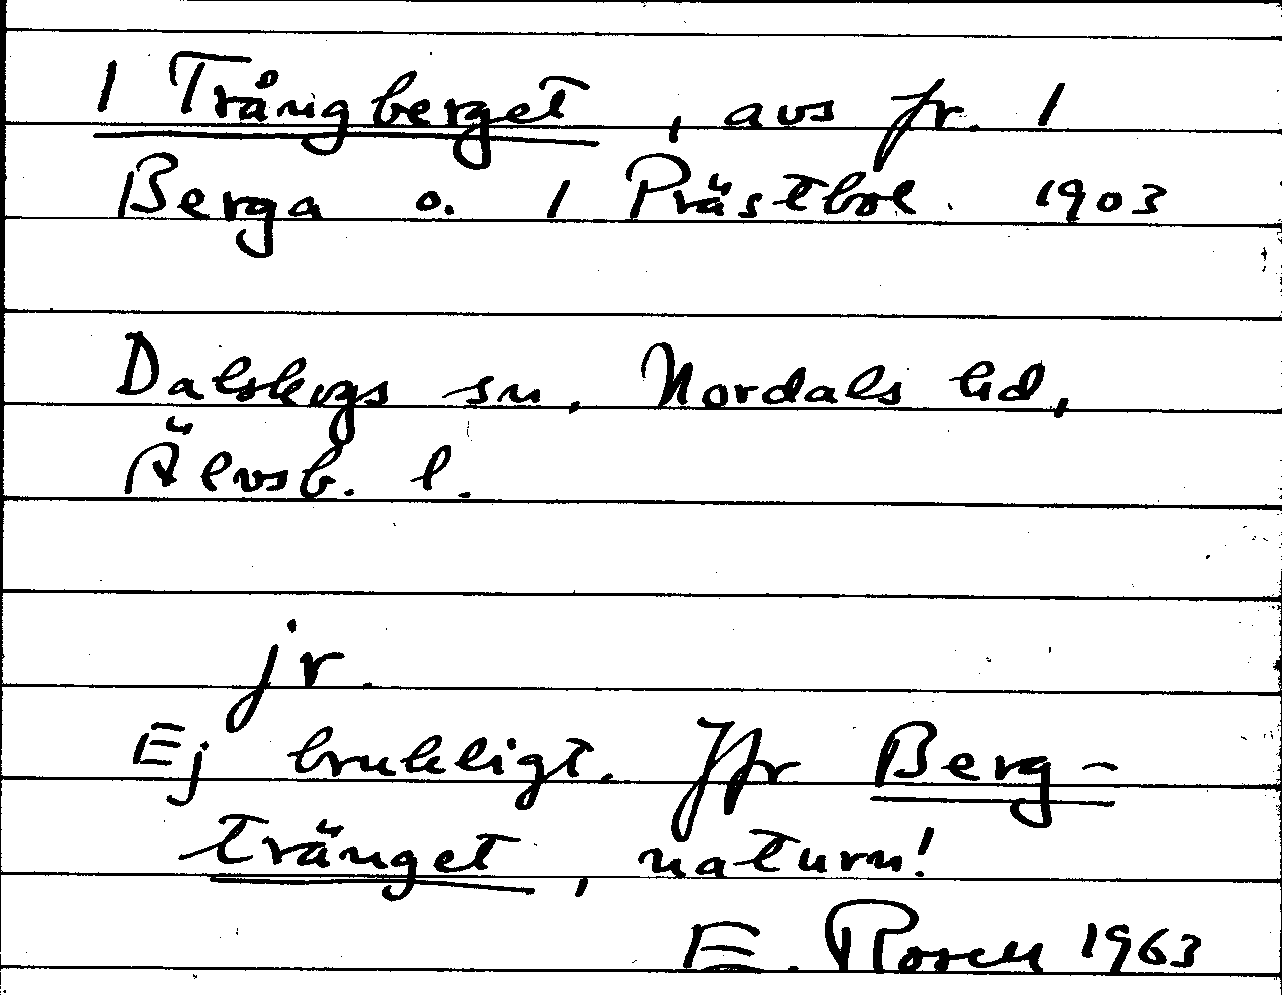 1 Trångberget, avs fr. 1
Berga o. 1 Prästbol. 1903
Dalskogs sn. Nordals hd,
Älvsb. l.
jr.
Ej brukligt. Jfr Berg-
tränget, naturn!
E. Rosell 1963